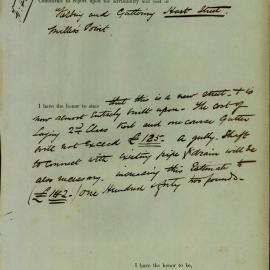 Committee to report upon the advisability and cost of
Kerbing and Guttering Hart Street,
Miller's Point
I have the honor to state that this is a new street & is
now almost entirely built upon. The cost of
laying 2nd Class Kerb and one course Gutter
will not exceed £125. a gully Shaft
to connect with existing pipe & drain will be
also necessary. increasing this Estimate to
(£142.) One Hundred & forty two pounds.
I have the honor to be,